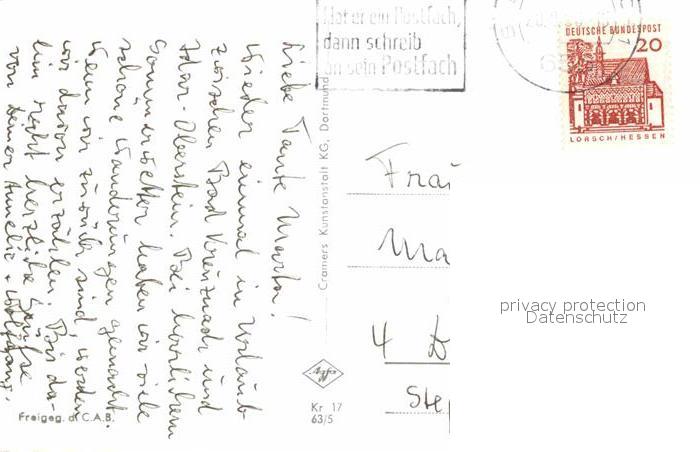 Liebe Tante Marta!
Wieder einmal in Urlaub
zwischen Bad Kreuznach und
Idar-Oberstein. Bei herrlichem
Sommerwetter haben wir viele
schöne Wanderungen gemacht.
Wenn wir zurück sind, werden
wir davon erzählen. Bis da-
hin recht herzliche Grüsse
von Deiner Amelie + Wolfgang.
Freigeg. d. C.A.B.
Cramers Kunstanstalt KG, Dortmund
Agfa
Kr 17
63/5
Hat er ein Postfach,
dann schreib
an sein Postfach
DEUTSCHE BUNDESPOST
20
LORSCH/HESSEN
Frau
Ma
4 D
Ste
privacy protection
Datenschutz